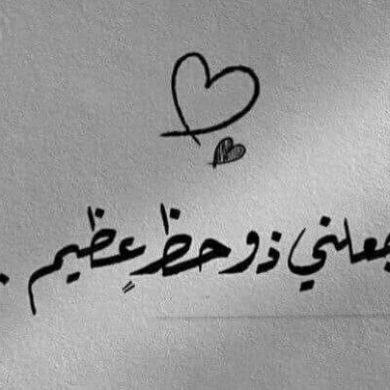 جعلني ذو حظ عظيم .